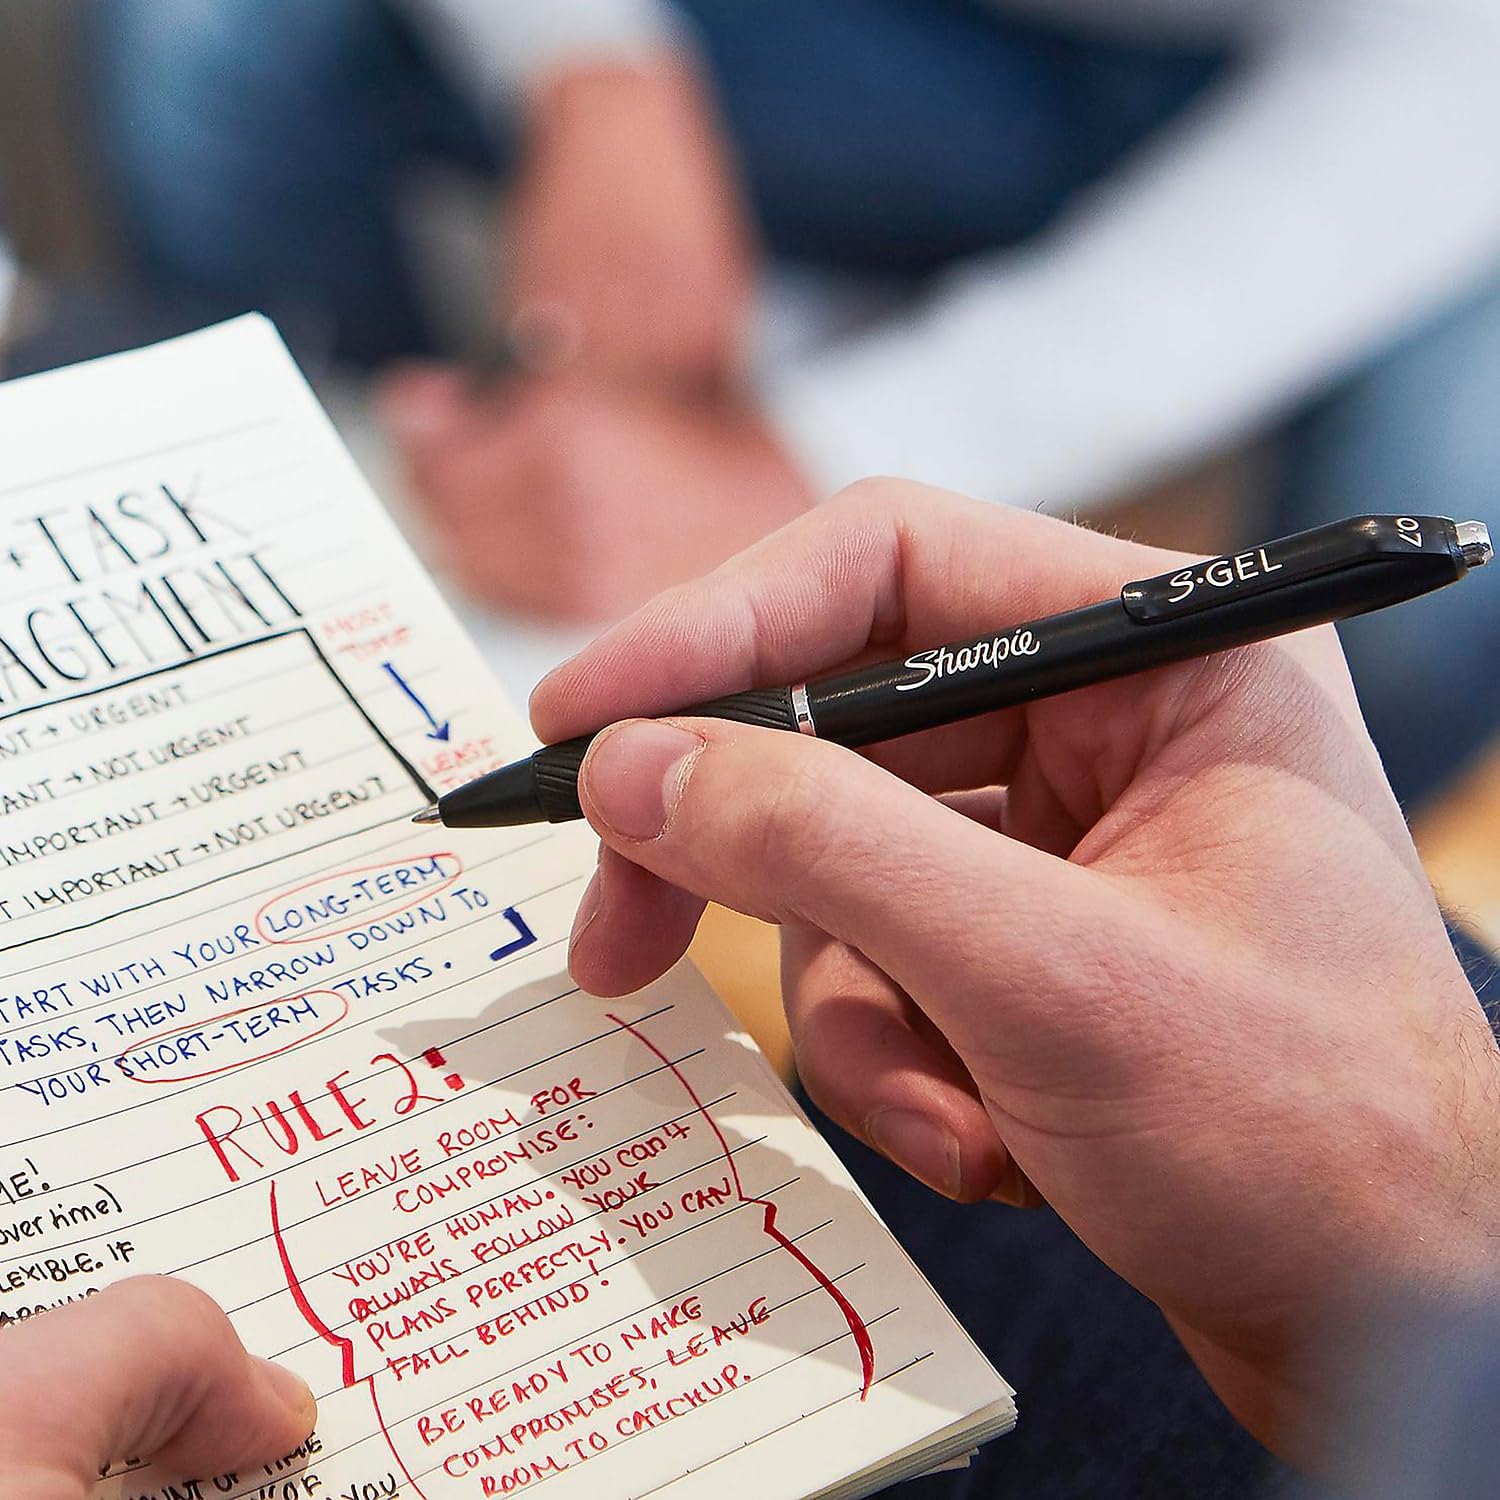 + TASK
AGEMENT
MOST
TIME
NT → URGENT
ANT → NOT URGENT
IMPORTANT → URGENT
T IMPORTANT → NOT URGENT
LEAST
TIME
TART WITH YOUR LONG-TERM
TASKS, THEN NARROW DOWN TO
YOUR SHORT-TERM TASKS.
RULE 2:
LEAVE ROOM FOR
COMPROMISE:
YOU'RE HUMAN. YOU can't
ALWAYS FOLLOW YOUR
PLANS PERFECTLY. YOU CAN
FALL BEHIND!
BE READY TO MAKE
COMPROMISES, LEAVE
ROOM TO CATCHUP.
ME!
over time)
LEXIBLE. IF
OUNT OF TIME
OF
YOU
Sharpie
S·GEL
0.7